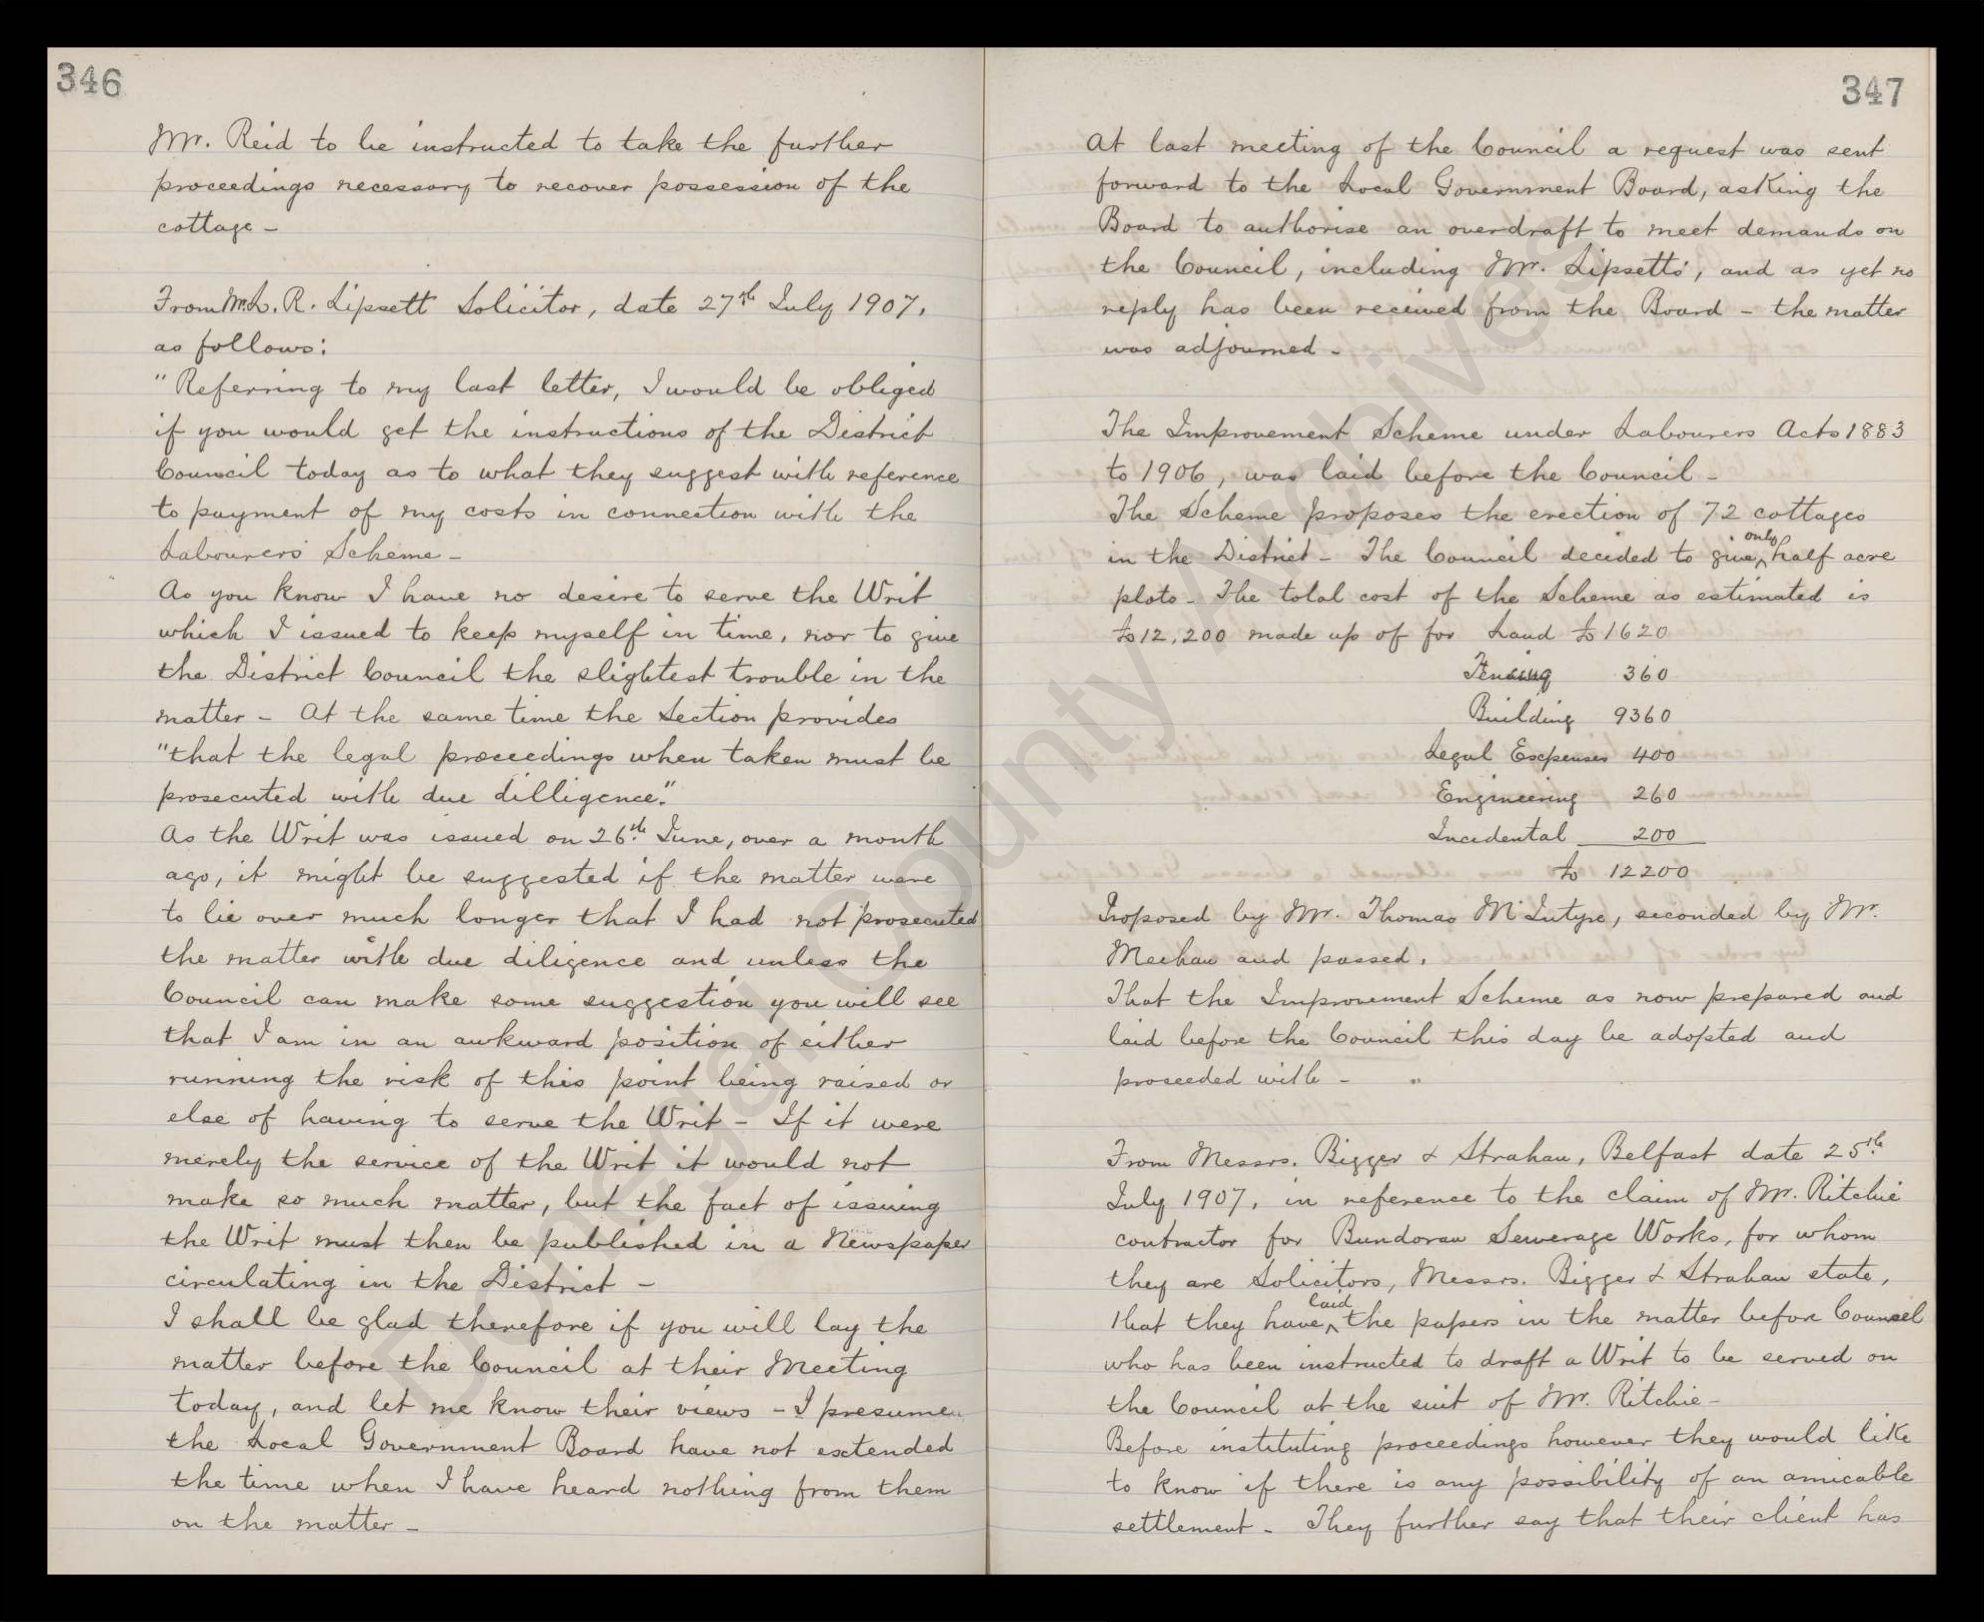 346
Mr. Reid to be instructed to take the further
proceedings necessary to recover possession of the
cottage -
From Mr. L. R. Lipsett Solicitor, date 27th July 1907.
as follows:
"Referring to my last letter, I would be obliged
if you would get the instructions of the District
Council today as to what they suggest with reference
to payment of my costs in connection with the
Labourers' Scheme -
As you know I have no desire to serve the Writ
which I issued to keep myself in time, nor to give
the District Council the slightest trouble in the
matter - At the same time the Section provides
"that the legal proceedings when taken must be
prosecuted with due dilligence."
As the Writ was issued on 26th June, over a month
ago, it might be suggested if the matter were
to lie over much longer that I had not prosecuted
the matter with due diligence and unless the
Council can make some suggestion you will see
that I am in an awkward position of either
running the risk of this point being raised or
else of having to serve the Writ - If it were
merely the service of the Writ it would not
make so much matter, but the fact of issuing
the Writ must then be published in a Newspaper
circulating in the District -
I shall be glad therefore if you will lay the
matter before the Council at their Meeting
today, and let me know their views - I presume
the Local Government Board have not extended
the time when I have heard nothing from them
on the matter -
347
At last meeting of the Council a request was sent
forward to the Local Government Board, asking the
Board to authorise an overdraft to meet demands on
the Council, including Mr. Lipsett's, and as yet no
reply has been received from the Board - the matter
was adjourned -
The Improvement Scheme under Labourers Acts 1883
to 1906, was laid before the Council -
The Scheme proposes the erection of 72 cottages
in the District - The Council decided to give only half acre
plots - The total cost of the Scheme as estimated is
£12,200 made up of for Land £1620
Fencing 360
Building 9360
Legal Expenses 400
Engineering 260
Incidental 200
£ 12200
Proposed by Mr. Thomas McIntyre, seconded by Mr.
Meehan and passed.
That the Improvement Scheme as now prepared and
laid before the Council this day be adopted and
proceeded with - "
From Messrs. Bigger & Strahan, Belfast date 25th
July 1907, in reference to the claim of Mr. Ritchie
contractor for Bundoran Sewerage Works, for whom
they are Solicitors, Messrs. Bigger & Strahan state,
that they have laid the papers in the matter before Counsel
who has been instructed to draft a Writ to be served on
the Council at the suit of Mr. Ritchie -
Before instituting proceedings however they would like
to know if there is any possibility of an amicable
settlement - They further say that their client has
Donegal County Archives